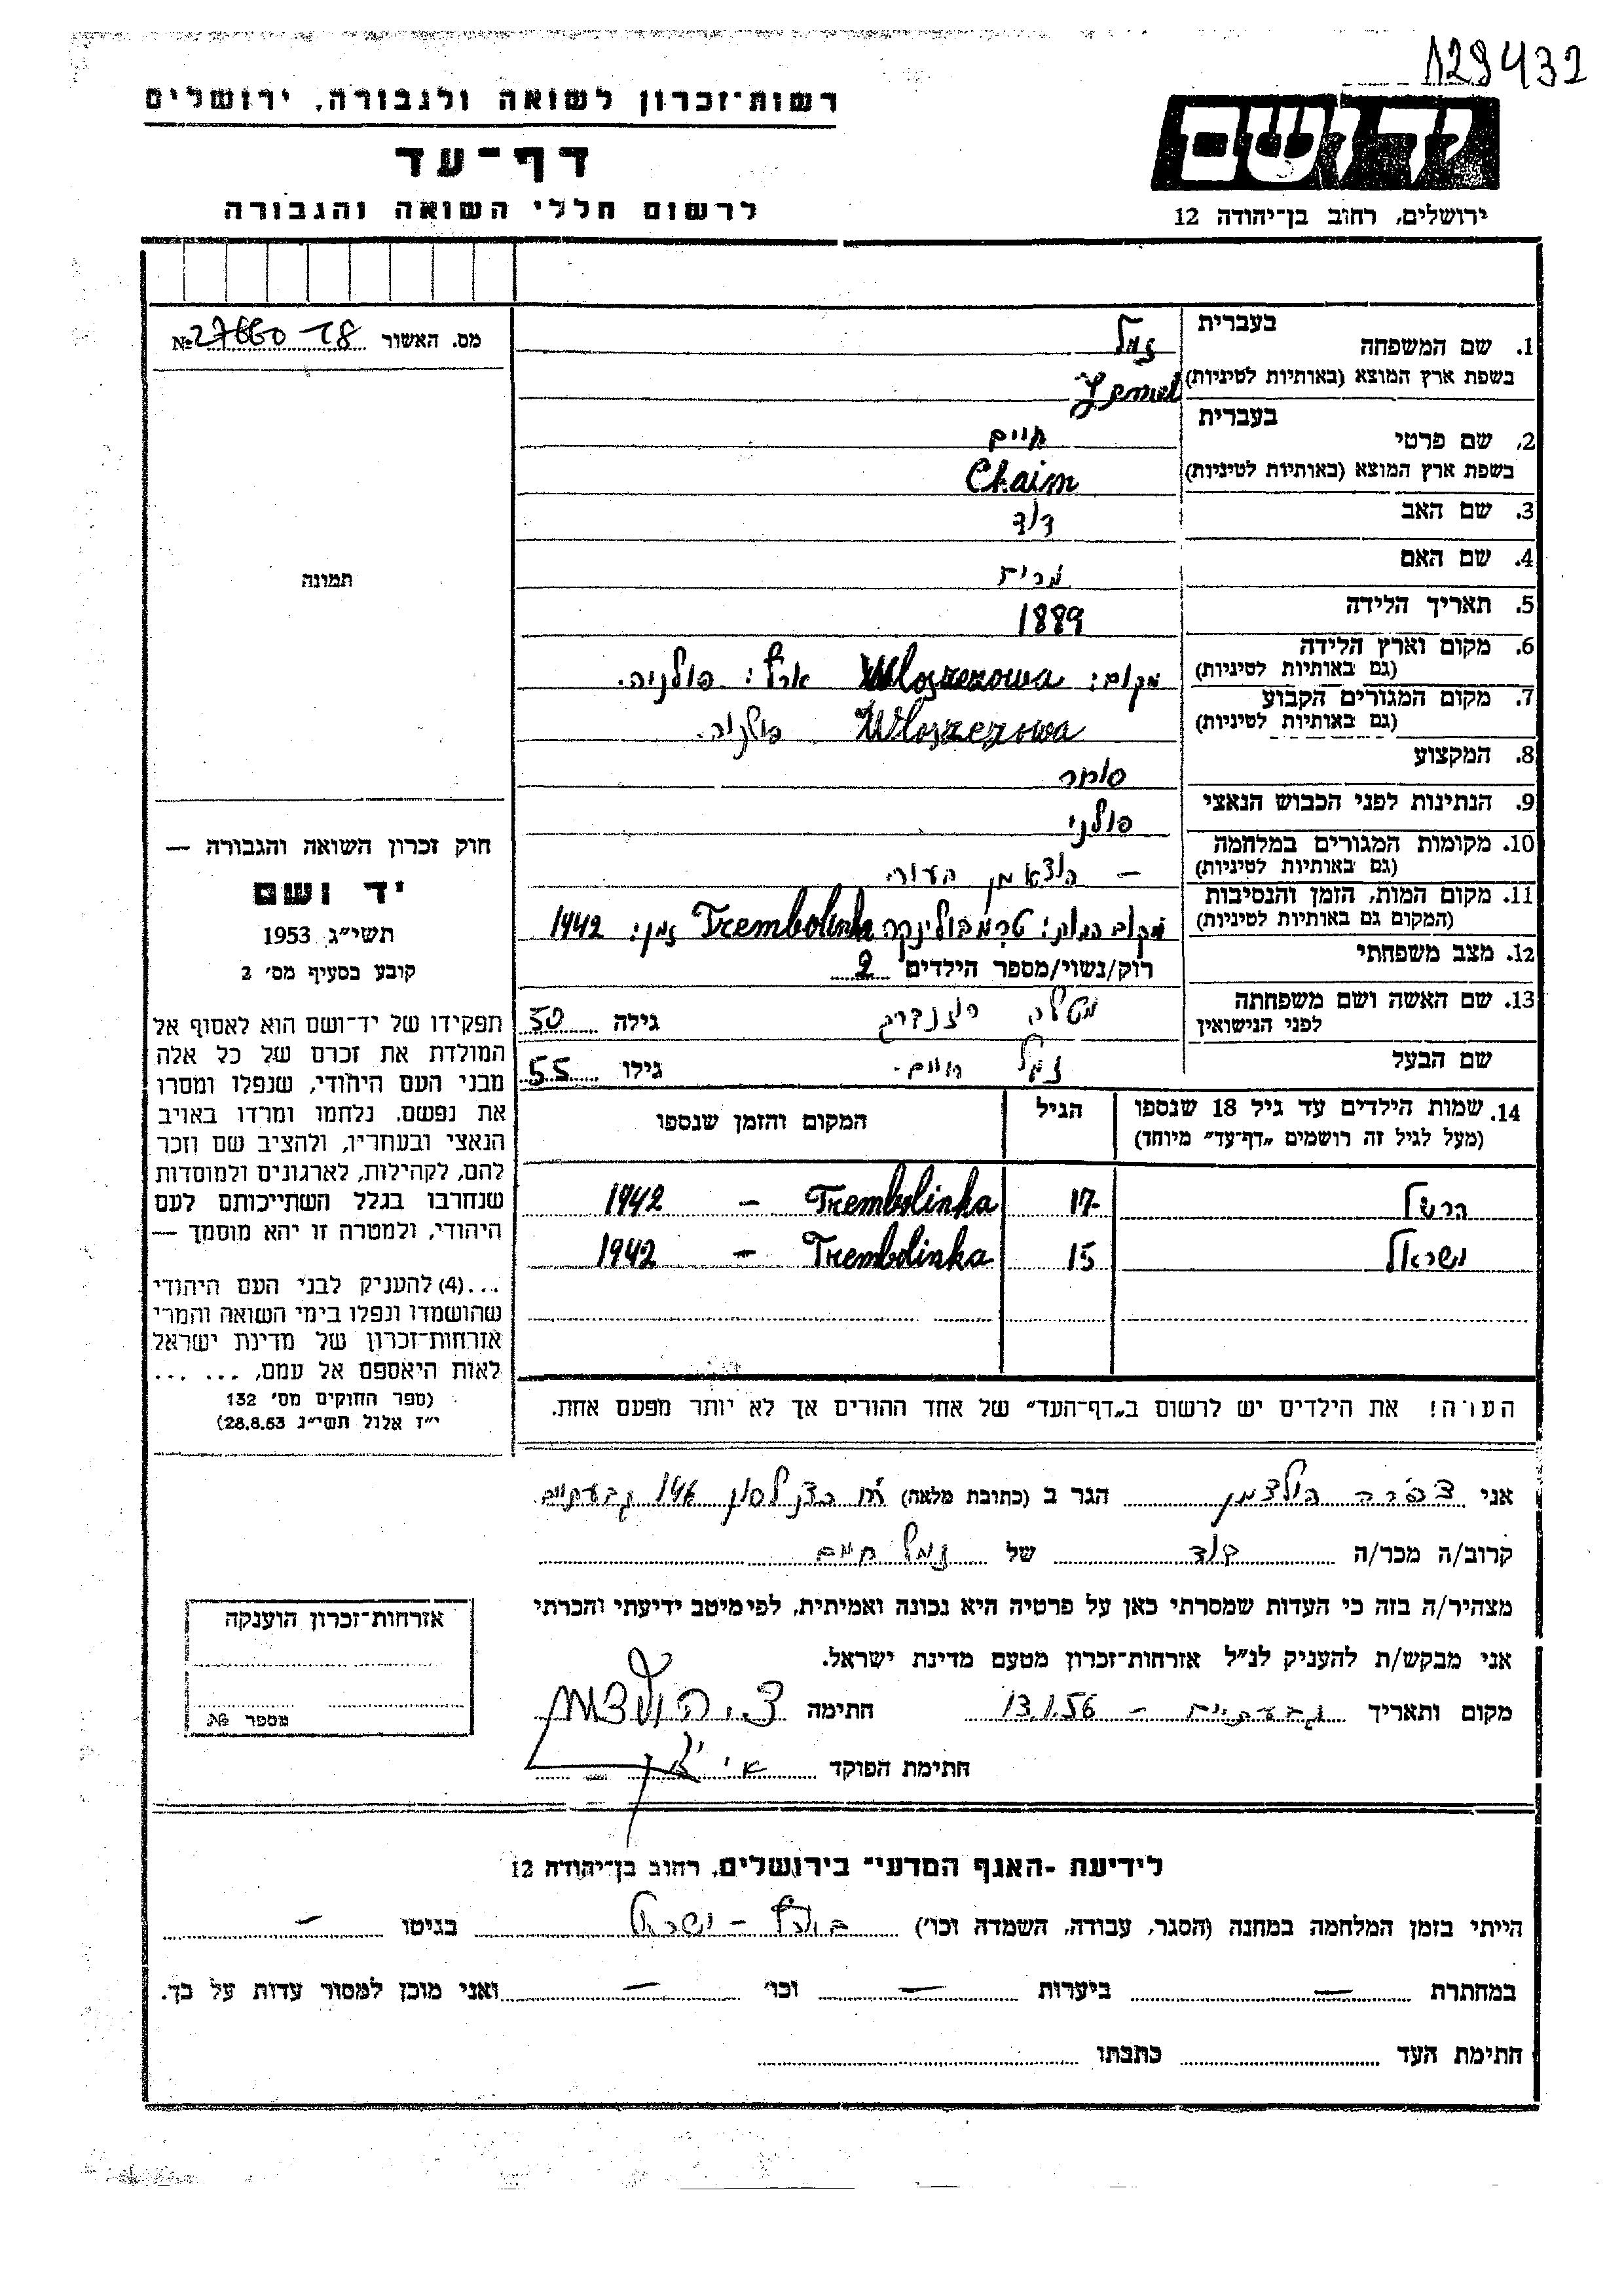 129432
רשות־זכרון לשואה ולגבורה, ירושלים
דף־עד
לרשום חללי השואה והגבורה
יד ושם
ירושלים, רחוב בן־יהודה 12
מס. האשור №
1. שם המשפחה בעברית זמל
בשפת ארץ המוצא (באותיות לטיניות) Zemel
2. שם פרטי בעברית חיים
בשפת ארץ המוצא (באותיות לטיניות) Chaim
3. שם האב דוד
4. שם האם
5. תאריך הלידה 1889
6. מקום וארץ הלידה (גם באותיות לטיניות) מקום: Wloszezowa ארץ: פולניה.
7. מקום המגורים הקבוע (גם באותיות לטיניות) Wloszezowa פולניה.
8. המקצוע סוחר
9. הנתינות לפני הכבוש הנאצי פולני
10. מקומות המגורים במלחמה (גם באותיות לטיניות) –
11. מקום המות, הזמן והנסיבות (המקום גם באותיות לטיניות) מקום המות: טרמבולינקה Trembolinka זמן: 1942
12. מצב משפחתי רוק/נשוי/מספר הילדים 2
13. שם האשה ושם משפחתה לפני הנישואין גילה 50
שם הבעל זמל חיים. גילו 55
14. שמות הילדים עד גיל 18 שנספו (מעל לגיל זה רושמים „דף־עד" מיוחד) הגיל המקום והזמן שנספו
הרשל 17 Trembolinka – 1942
ישראל 15 Trembolinka – 1942
הערה! את הילדים יש לרשום ב„דף־העד" של אחד ההורים אך לא יותר מפעם אחת.
תמונה
חוק זכרון השואה והגבורה —
יד ושם
תשי״ג 1953
קובע בסעיף מס׳ 2
תפקידו של יד־ושם הוא לאסוף אל
המולדת את זכרם של כל אלה
מבני העם היהודי, שנפלו ומסרו
את נפשם, נלחמו ומרדו באויב
הנאצי ובעוזריו, ולהציב שם וזכר
להם, לקהילות, לארגונים ולמוסדות
שנחרבו בגלל השתייכותם לעם
היהודי, ולמטרה זו יהא מוסמך —
...(4) להעניק לבני העם היהודי
שהושמדו ונפלו בימי השואה והמרי
אזרחות־זכרון של מדינת ישראל
לאות היאספם אל עמם, ... ...
(ספר החוקים מס׳ 132
י״ז אלול תשי״ג 28.8.53)
אני צפורה הולצמן הגר ב (כתובת מלאה) גבעתיים
קרוב/ה מכר/ה דוד של זמל חיים
מצהיר/ה בזה כי העדות שמסרתי כאן על פרטיה היא נכונה ואמיתית, לפי מיטב ידיעתי והכרתי
אני מבקש/ת להעניק לנ״ל אזרחות־זכרון מטעם מדינת ישראל.
מקום ותאריך גבעתיים – 13.1.56 חתימה צ. הולצמן
חתימת הפוקד
אזרחות־זכרון הוענקה
מספר №
לידיעת „האגף המדעי" בירושלים, רחוב בן־יהודה 12
הייתי בזמן המלחמה במחנה (הסגר, עבודה, השמדה וכו׳) בארץ – ישראל בגיטו –
במחתרת – ביערות – וכו׳ – ואני מוכן למסור עדות על כך.
חתימת העד כתבתו